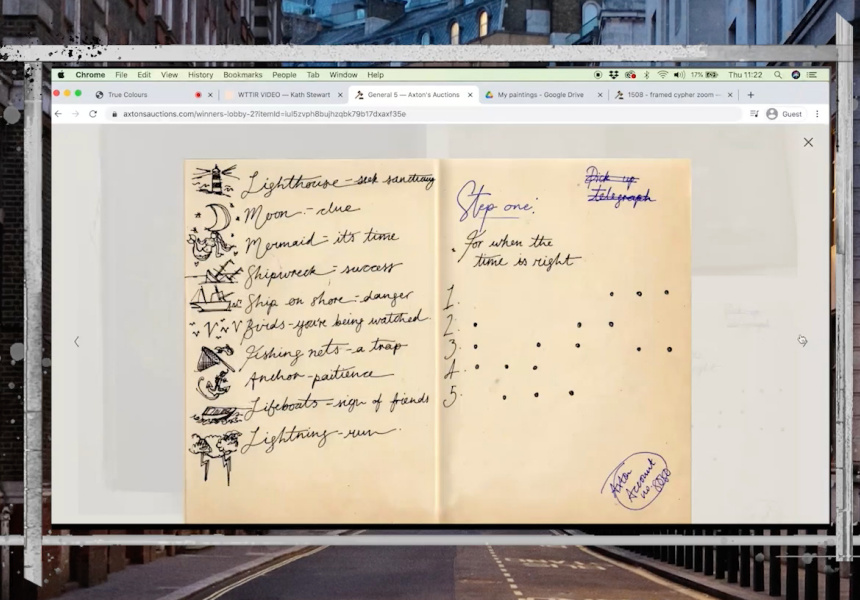 Chrome File Edit View History Bookmarks People Tab Window Help
17% Thu 11:22
True Colours
WTTIR VIDEO — Kath Stewart
General 5 — Axton's Auctions
My paintings - Google Drive
1508 - framed cypher zoom —
axtonsauctions.com/winners-lobby-2?itemId=iul5zvph8bujhzqbk79b17dxaxf35e
Guest
Lighthouse - seek sanctuary
Moon - clue
Mermaid - it's time
Shipwreck - success
Ship on shore - danger
Birds - you're being watched
Fishing nets - a trap
Anchor - paitience
Lifeboats - sign of friends
Lightning - run
Pick up
telegraph
Step one:
For when the
time is right
1.
2.
3.
4.
5.
Axton
Account
no. 8080